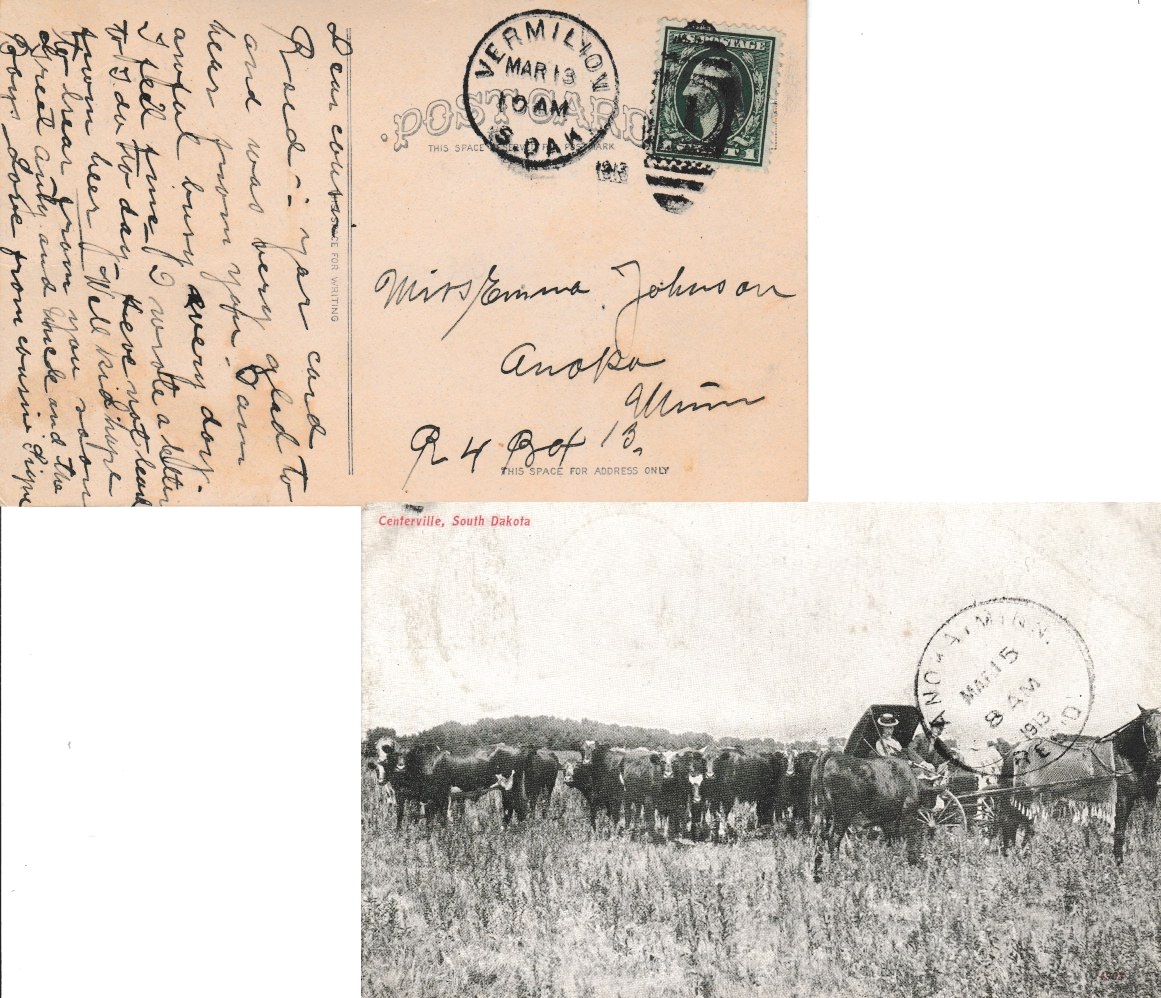 Dear cousin
Rised - yar card
and was very glad to
hear from you - I am
awful busy every day -
I feel fine, I wrote a letter
to I do to day - Heve not
from her Well kid hope
to hear from you soon
Greet anty and uncle and the
Boys - Love from cousin
SPACE FOR WRITING
VERMILION
MAR 13
10 AM
S. DAK.
1913
POST CARD
THIS SPACE RESERVED FOR POSTMARK
U.S. POSTAGE
1
Miss Emma Johnson
Anoka
Minn
R 4 Box 13.
THIS SPACE FOR ADDRESS ONLY
Centerville, South Dakota
ANOKA, MINN.
MAR 15
8 AM
1913
REC'D.